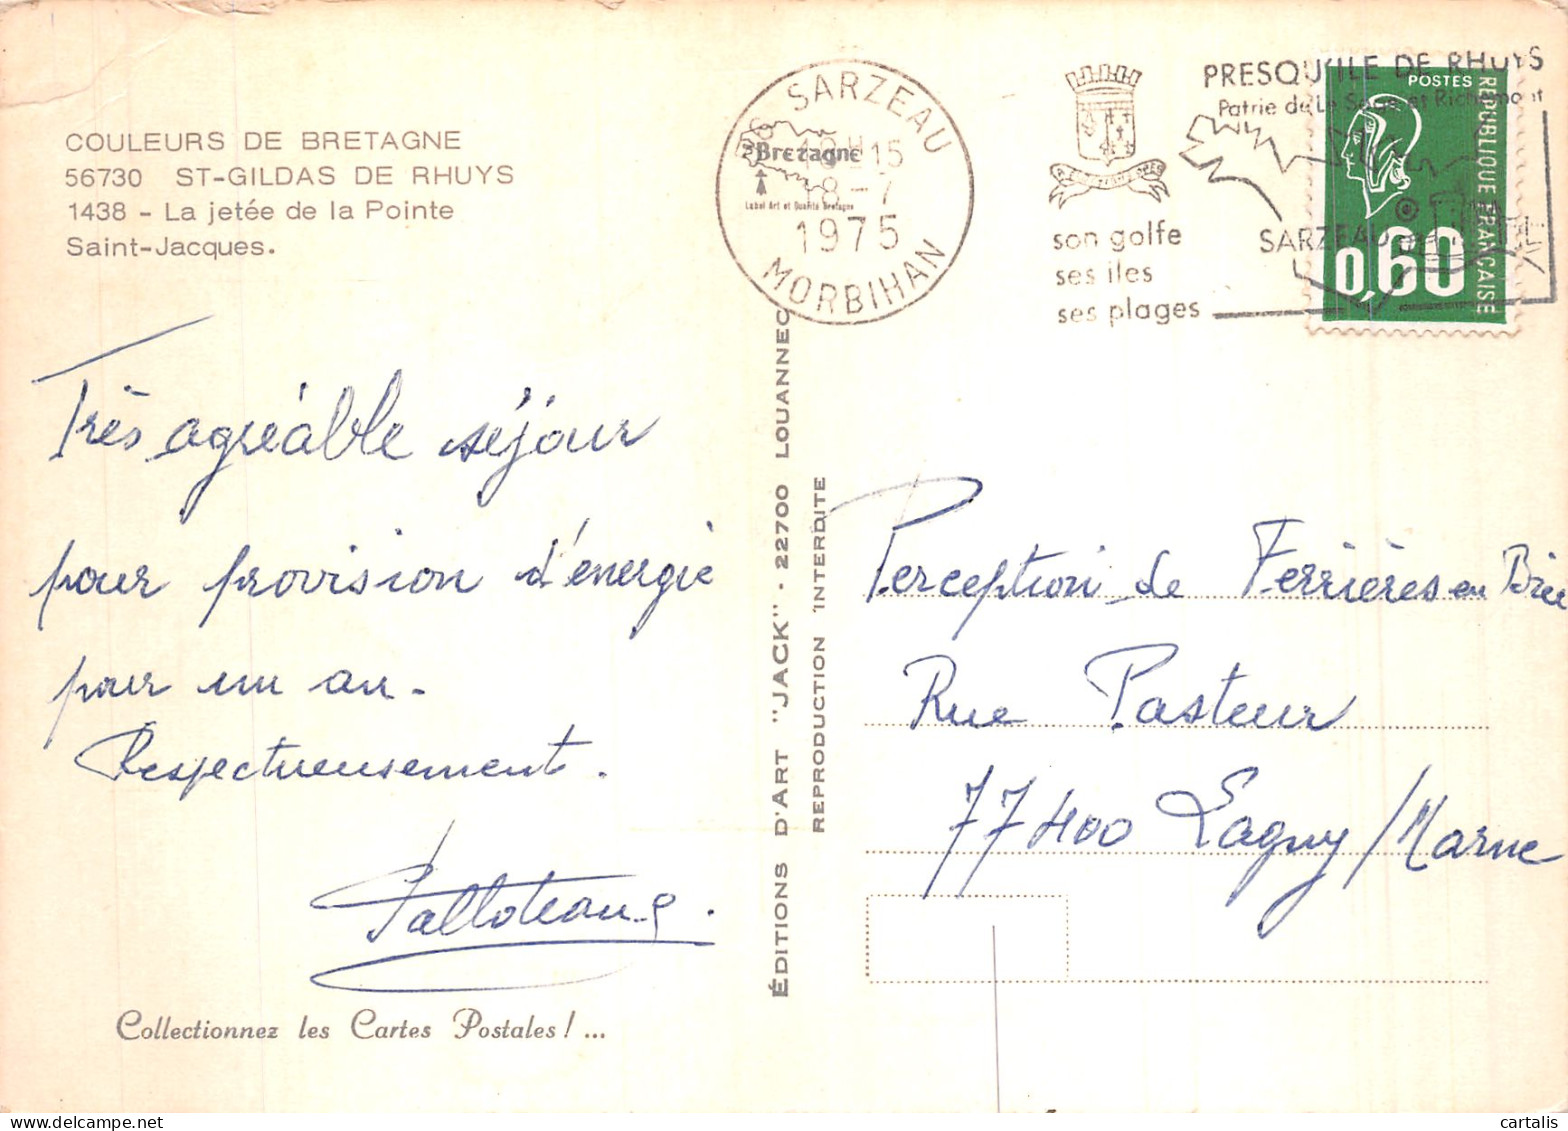 COULEURS DE BRETAGNE
56730 ST-GILDAS DE RHUYS
1438 - La jetée de la Pointe
Saint-Jacques.
Très agréable séjour
pour provision d'énergie
pour un an.
Respectueusement.
Collectionnez les Cartes Postales ! ...
ÉDITIONS D'ART "JACK" - 22700 LOUANNEC
REPRODUCTION INTERDITE
SARZEAU
Bretagne
Label Art et Qualité Bretagne
15
8-7
1975
MORBIHAN
PRESQU'ILE DE RHUYS
Patrie de Le Sage et Richemont
son golfe
ses iles
ses plages
SARZEAU
POSTES
REPUBLIQUE FRANÇAISE
0,60
Perception de Ferrières en Brie
Rue Pasteur
77400 Lagny/Marne
cartalis